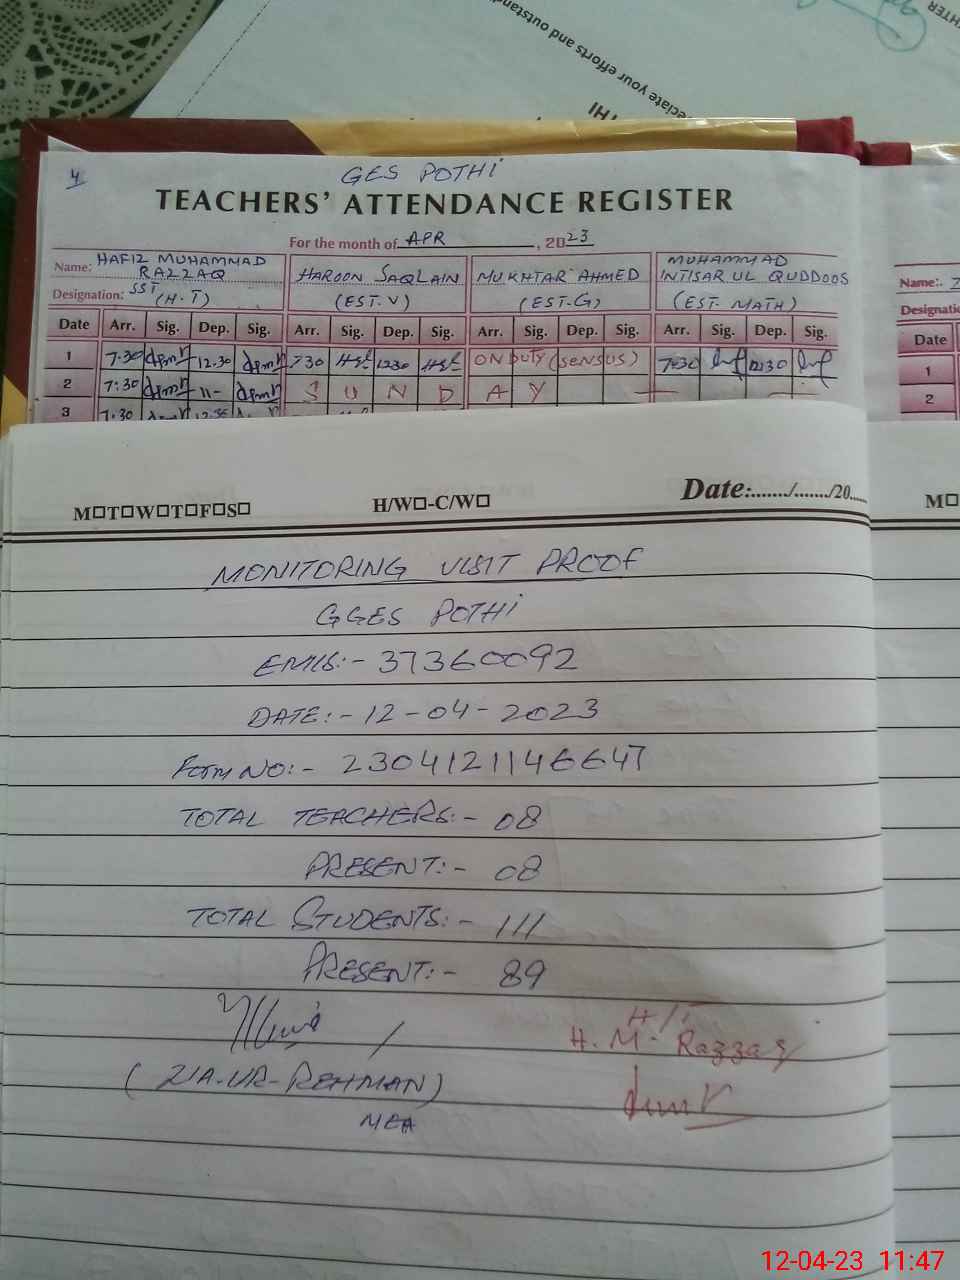 preciate your efforts and outstand
THI
HTER
4
GES POTHI
TEACHERS' ATTENDANCE REGISTER
For the month of APR, 2023
Name: HAFIZ MUHAMMAD RAZZAQ
HAROON SAQLAIN
MUKHTAR AHMED
MUHAMMAD INTISAR UL QUDDOOS
Name:
Designation: SST (H.T)
(EST.V)
(EST-G)
(EST. MATH)
Designatio
Date Arr. Sig. Dep. Sig. Arr. Sig. Dep. Sig. Arr. Sig. Dep. Sig. Arr. Sig. Dep. Sig.
Date
1 7.30 12.30 730 1230 ON DUTY (SENSUS) 7.30 12.30
1
2 7:30 11- S U N D A Y
2
3 7.30
M□T□W□T□F□S□
H/W□-C/W□
Date:......./......./20.....
M□
MONITORING VISIT PROOF
GGES POTHI
EMIS:- 37360092
DATE:- 12-04-2023
Form NO:- 2304121146647
TOTAL TEACHERS:- 08
PRESENT:- 08
TOTAL STUDENTS:- 111
PRESENT:- 89
H/T
H. M. Razzaq
(ZIA-UR-REHMAN)
MEA
12-04-23 11:47